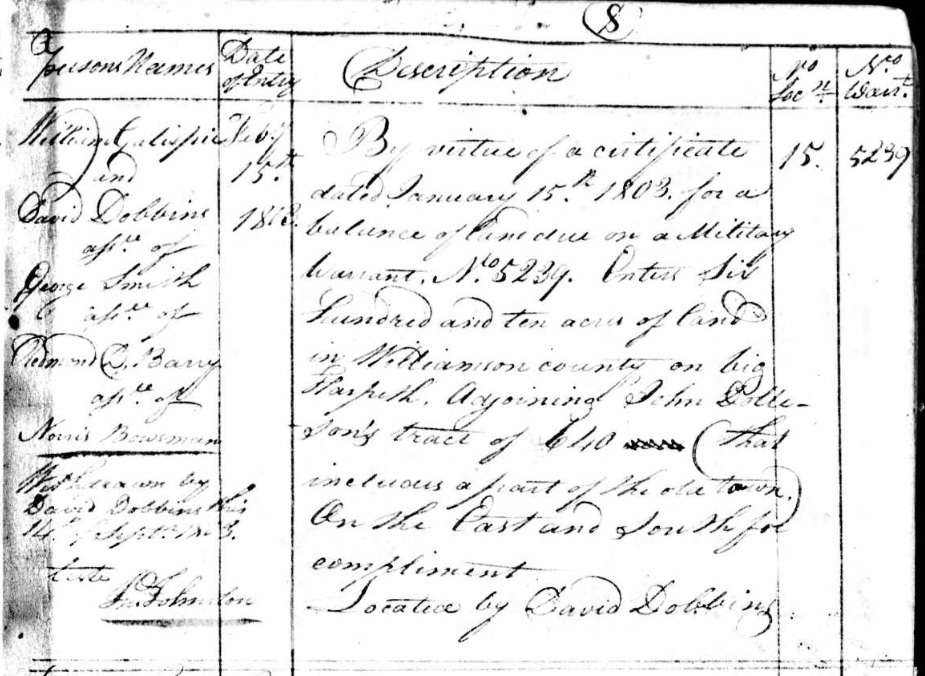 8
Persons Names
Date of Entry
Description
No Locn.
No. Warrt.
William Galispie
and
David Dobbins
asse. of
George Smith
asse. of
Redmond D. Barry
asse. of
Norris Bowman
Withdrawn by
David Dobbins this
14 of Septr.
teste
Jno Johnston
Feby
15th
By virtue of a certificate
dated January 15th. 1803. for a
balance of land due on a Military
Warrant. No. 5239. Enters Six
hundred and ten acres of land
in Williamson county on big
Harpeth. Adjoining John Dolli-
son's tract of 640 (that
includes a part of the old town.)
On the East and South for
compliment
Located by David Dobbins
15.
5239